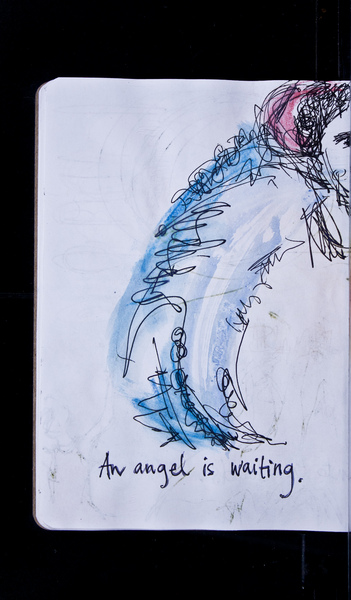 An angel is waiting.